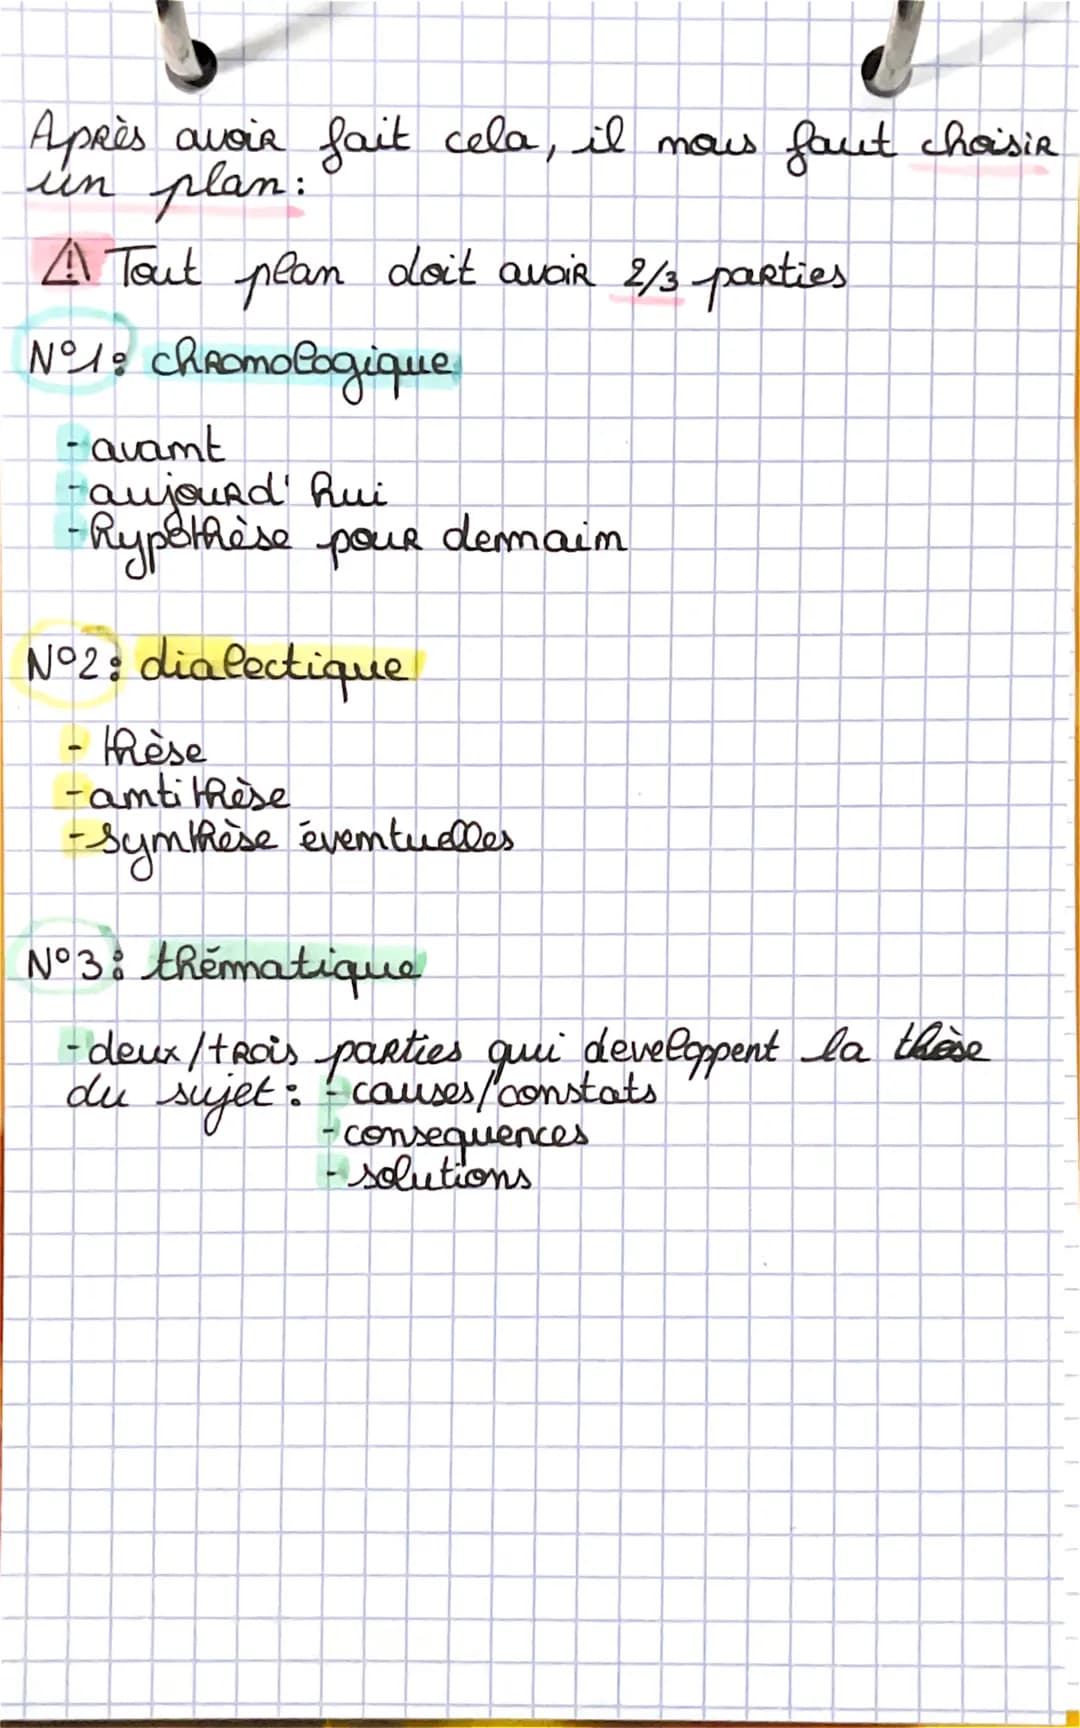 Après avoir fait cela, il nous faut choisir
un plan :
⚠ Tout plan doit avoir 2/3 parties
N°1 : chronologique
- avant
- aujourd'hui
- hypothèse pour demain
N°2 : dialectique
- thèse
- antithèse
- synthèse éventuelles
N°3 : thématique
- deux/trois parties qui developpent la thèse
du sujet : - causes/constats
- consequences
- solutions